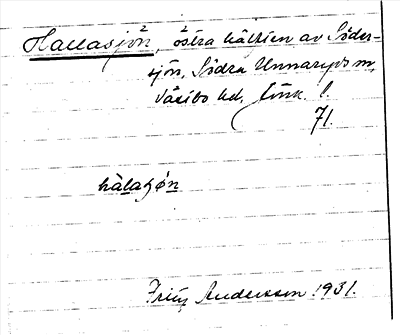 Hallasjön, östra hälften av Söder-
sjön, Södra Unnaryds sn,
Västbo hd, Jönk. l.
71.
hàlaʃø̀n
Fritz Andersson 1931.